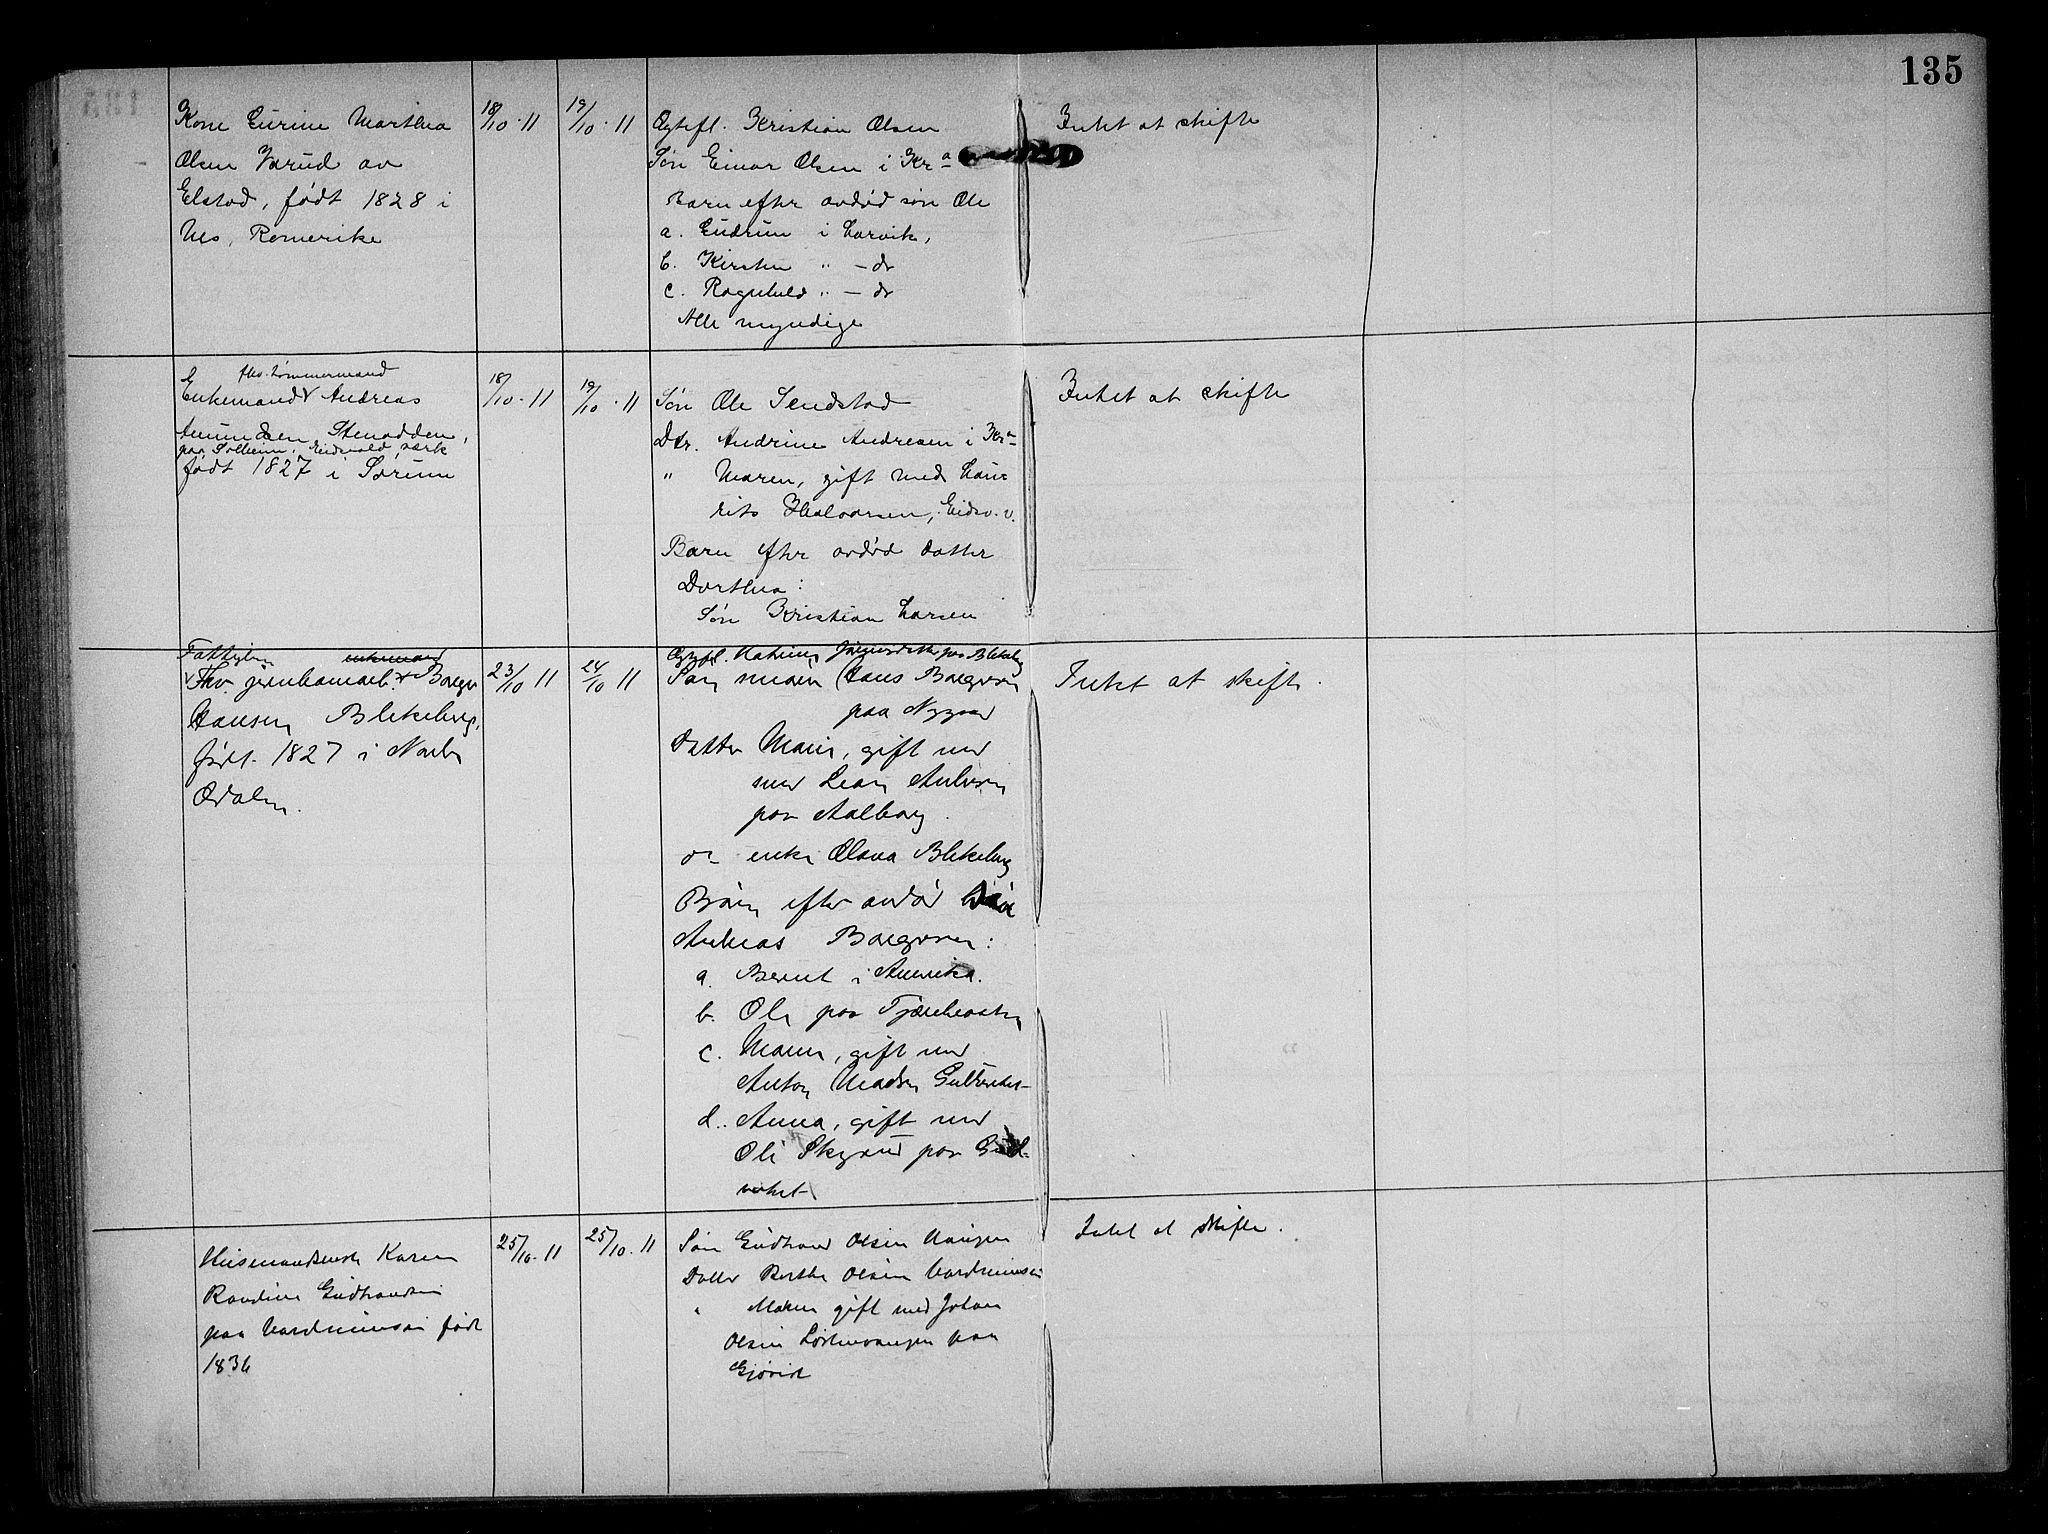 135
Kone Gurine Marthea
Olsen Varud av
Elstad, født 1828 i
Nes, Romerike
18/10.11
19/10.11
Egtefl. Kristian Olsen
Søn Einar Olsen i Kra
Barn efter avdød søn Ole
a. Gudrun i Larvik,
b. Kirsten " - do
c. Ragnhild " - do
Alle myndige
Intet at skifte
fhv. tømmermand
Enkemand Andreas
Amundsen Stenodden,
paa Solheim, Eidsvold værk
født 1827 i Sørum
18/10.11
19/10.11
Søn Ole Sendstad
Dtr. Andrine Andresen i Kra
" Maren, gift med Lau-
rits Halvorsen, Eidsv. v.
Barn efter avdød datter
Dorthea:
Søn Kristian Larsen
Intet at skifte
Fattiglem enkemand
Fhv. jernbanearb. Borger
Hansen Blekeberg,
født 1827 i Nordre
Odalen.
23/10 11
24/10 11
Egtefl. paa Blekeberg
Søn Hans Borgersen
paa Nygaard
Datter Marie, gift med
med
paa Aalborg.
do enke Olava Blekeberg
Børn efter avdød søn
Andreas Borgersen:
a. Bernt i Amerika.
b. Ole paa
c. Maren, gift med
Anton Madsen Guldverket
d. Anna, gift med
Ole Skyrud paa Guld-
verket
Intet at skifte.
Husmandsenke Karen
Randine Gudbrandsen
paa født
1836
25/10.11
25/10.11
Søn Gudbrand Olsen Haugen
Datter Berthe Olsen
" Maren gift med Johan
Olsen paa
Gjøvik
Intet at skifte.